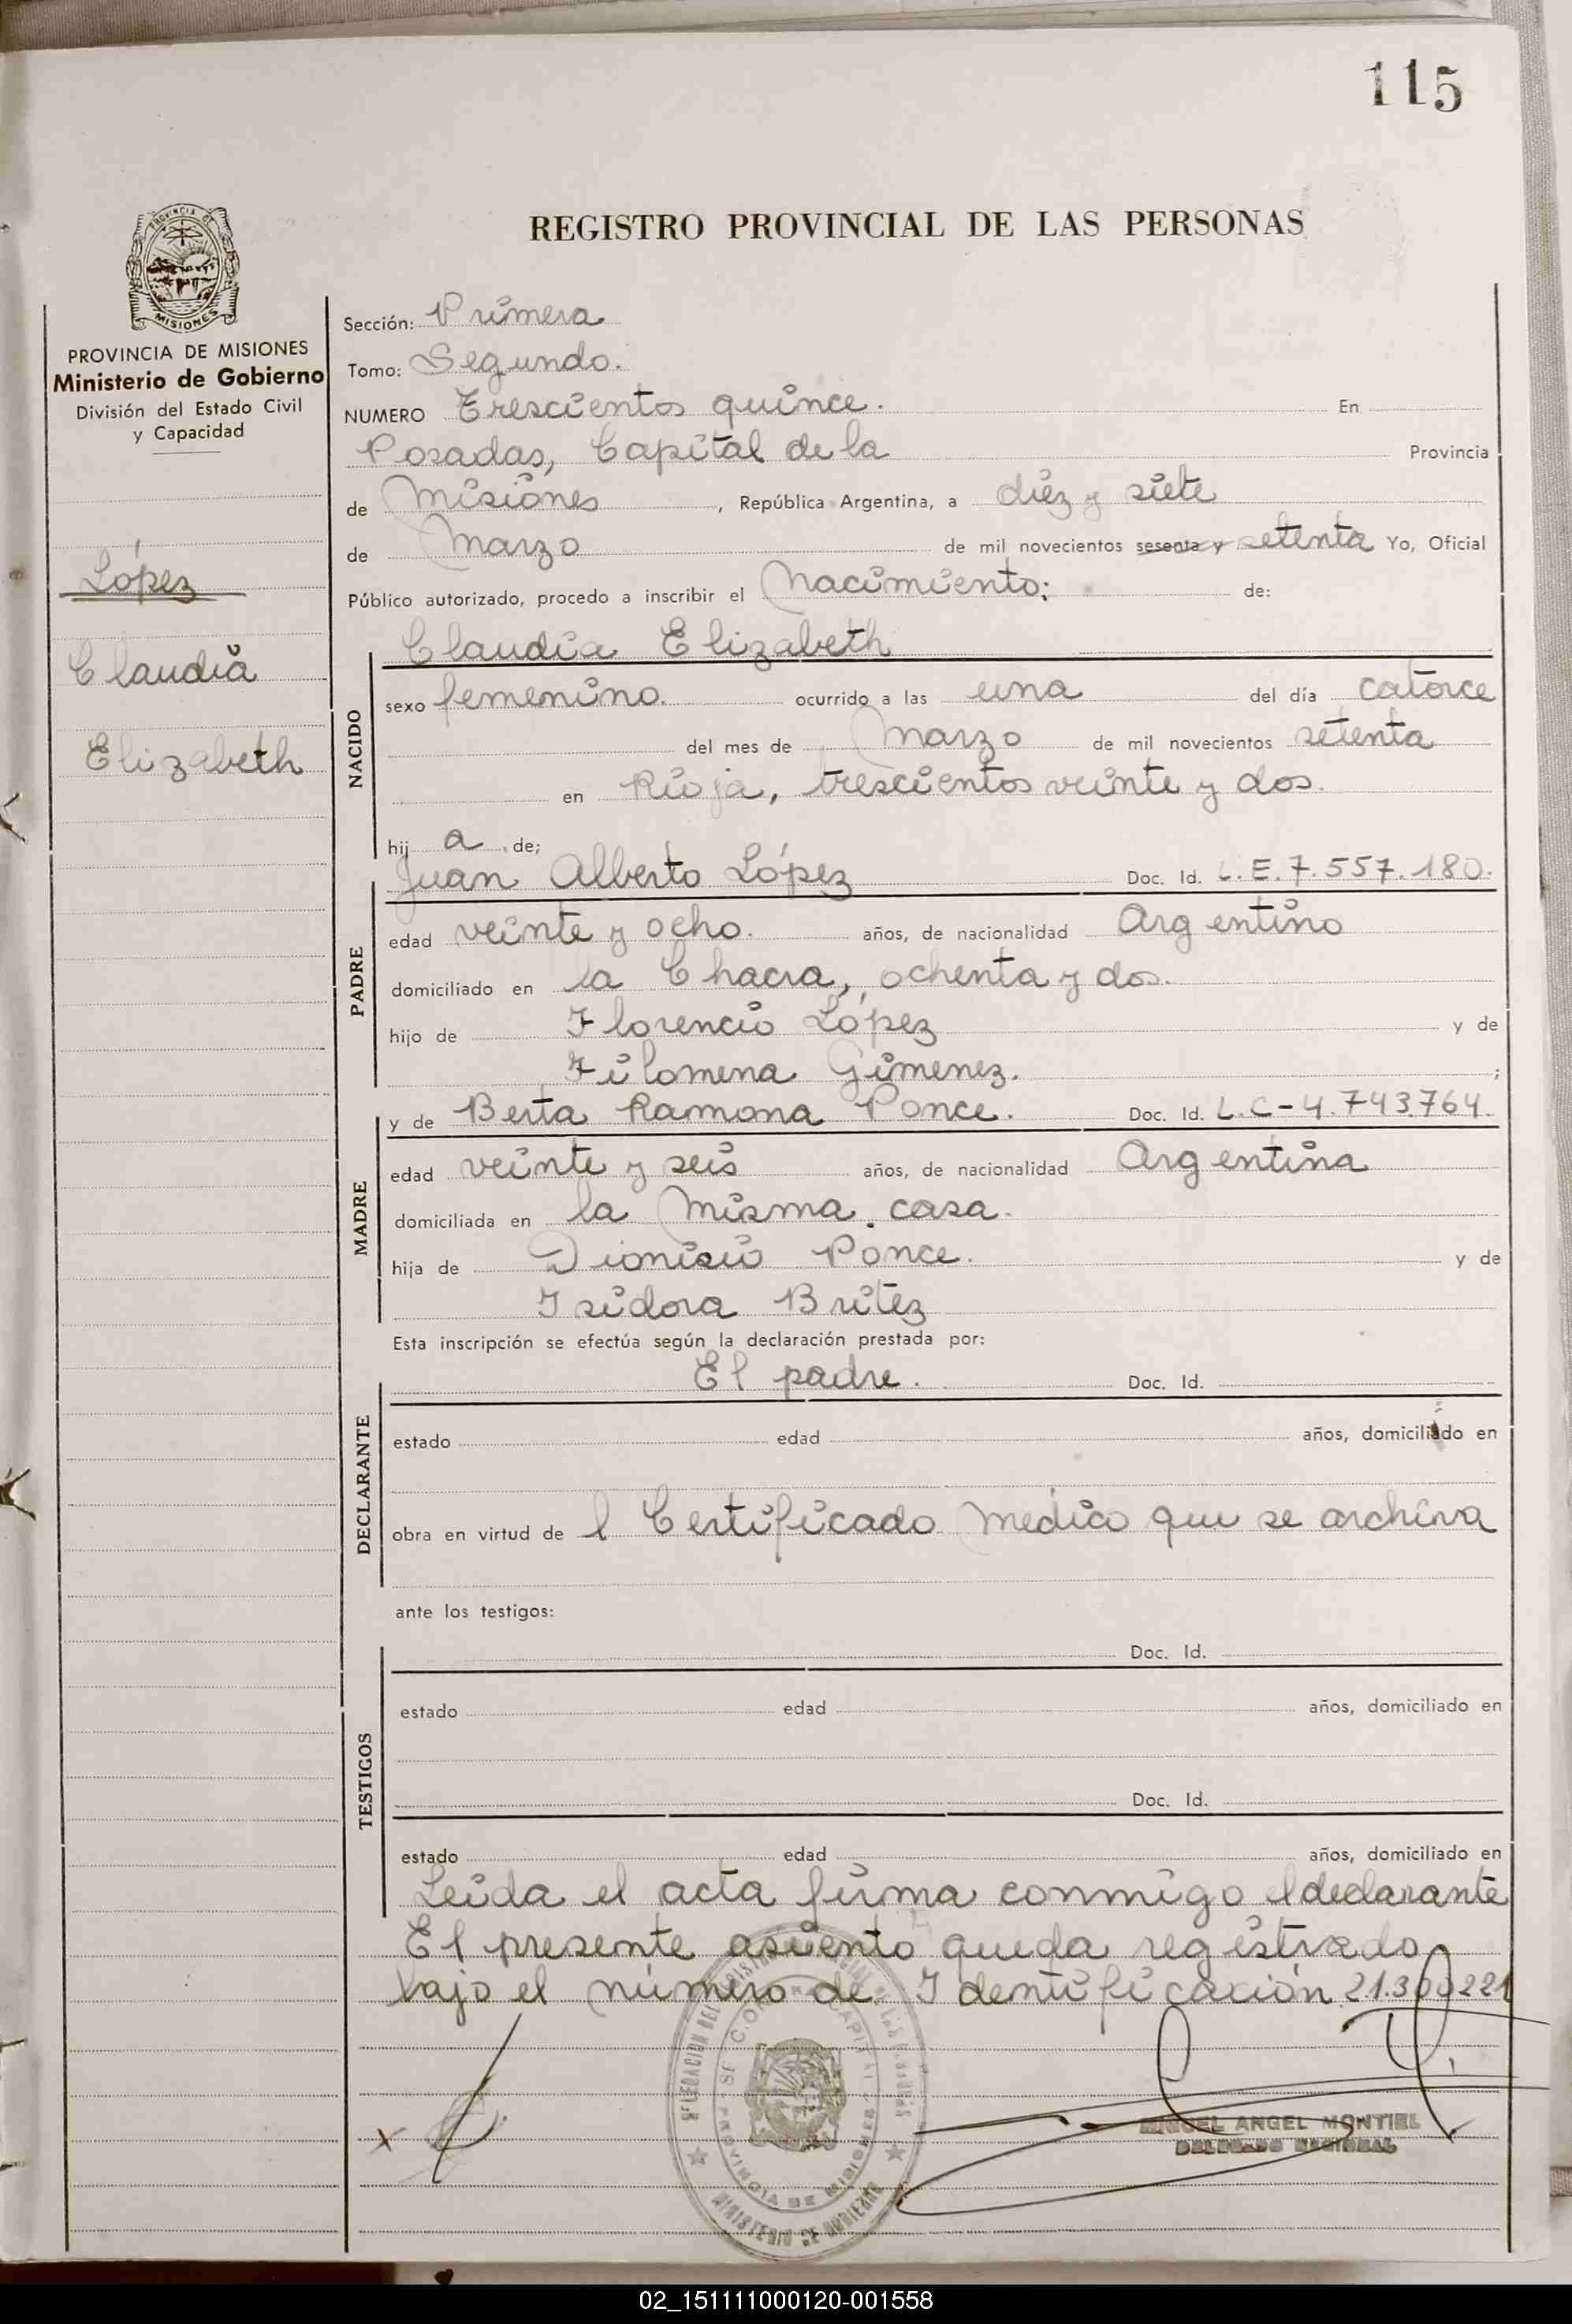 115
REGISTRO PROVINCIAL DE LAS PERSONAS
PROVINCIA DE
MISIONES
PROVINCIA DE MISIONES
Ministerio de Gobierno
División del Estado Civil
y Capacidad
López
Claudia
Elizabeth
Sección: Primera
Tomo: Segundo.
NUMERO Trescientos quince. En
Posadas, Capital de la Provincia
de Misiones, República Argentina, a diez y siete
de Marzo de mil novecientos sesenta y setenta Yo, Oficial
Público autorizado, procedo a inscribir el Nacimiento; de:
NACIDO
Claudia Elizabeth
sexo femenino. ocurrido a las una del día catorce
del mes de Marzo de mil novecientos setenta
en Rioja, trescientos veinte y dos.
hij a de;
PADRE
Juan Alberto López Doc. Id. L.E.7.557.180.
edad veinte y ocho. años, de nacionalidad Argentino
domiciliado en la Chacra, ochenta y dos.
hijo de Florencio López y de
Filomena Gimenez. ;
MADRE
y de Berta Ramona Ponce. Doc. Id. L.C-4.743764.
edad veinte y seis años, de nacionalidad Argentina
domiciliada en la misma casa.
hija de Dionisio Ponce. y de
Isidora Britez
Esta inscripción se efectúa según la declaración prestada por:
DECLARANTE
El padre. Doc. Id.
estado edad años, domiciliado en
obra en virtud de l Certificado Medico que se archiva
ante los testigos:
TESTIGOS
Doc. Id.
estado edad años, domiciliado en
Doc. Id.
estado edad años, domiciliado en
Leida el acta firma conmigo el declarante
El presente asiento queda registrado
bajo el número de Identificación 21.300221
PROVINCIA DE MISIONES
MINISTERIO DE GOBIERNO
MIGUEL ANGEL MONTIEL
DELEGADO REGIONAL
02_151111000120-001558